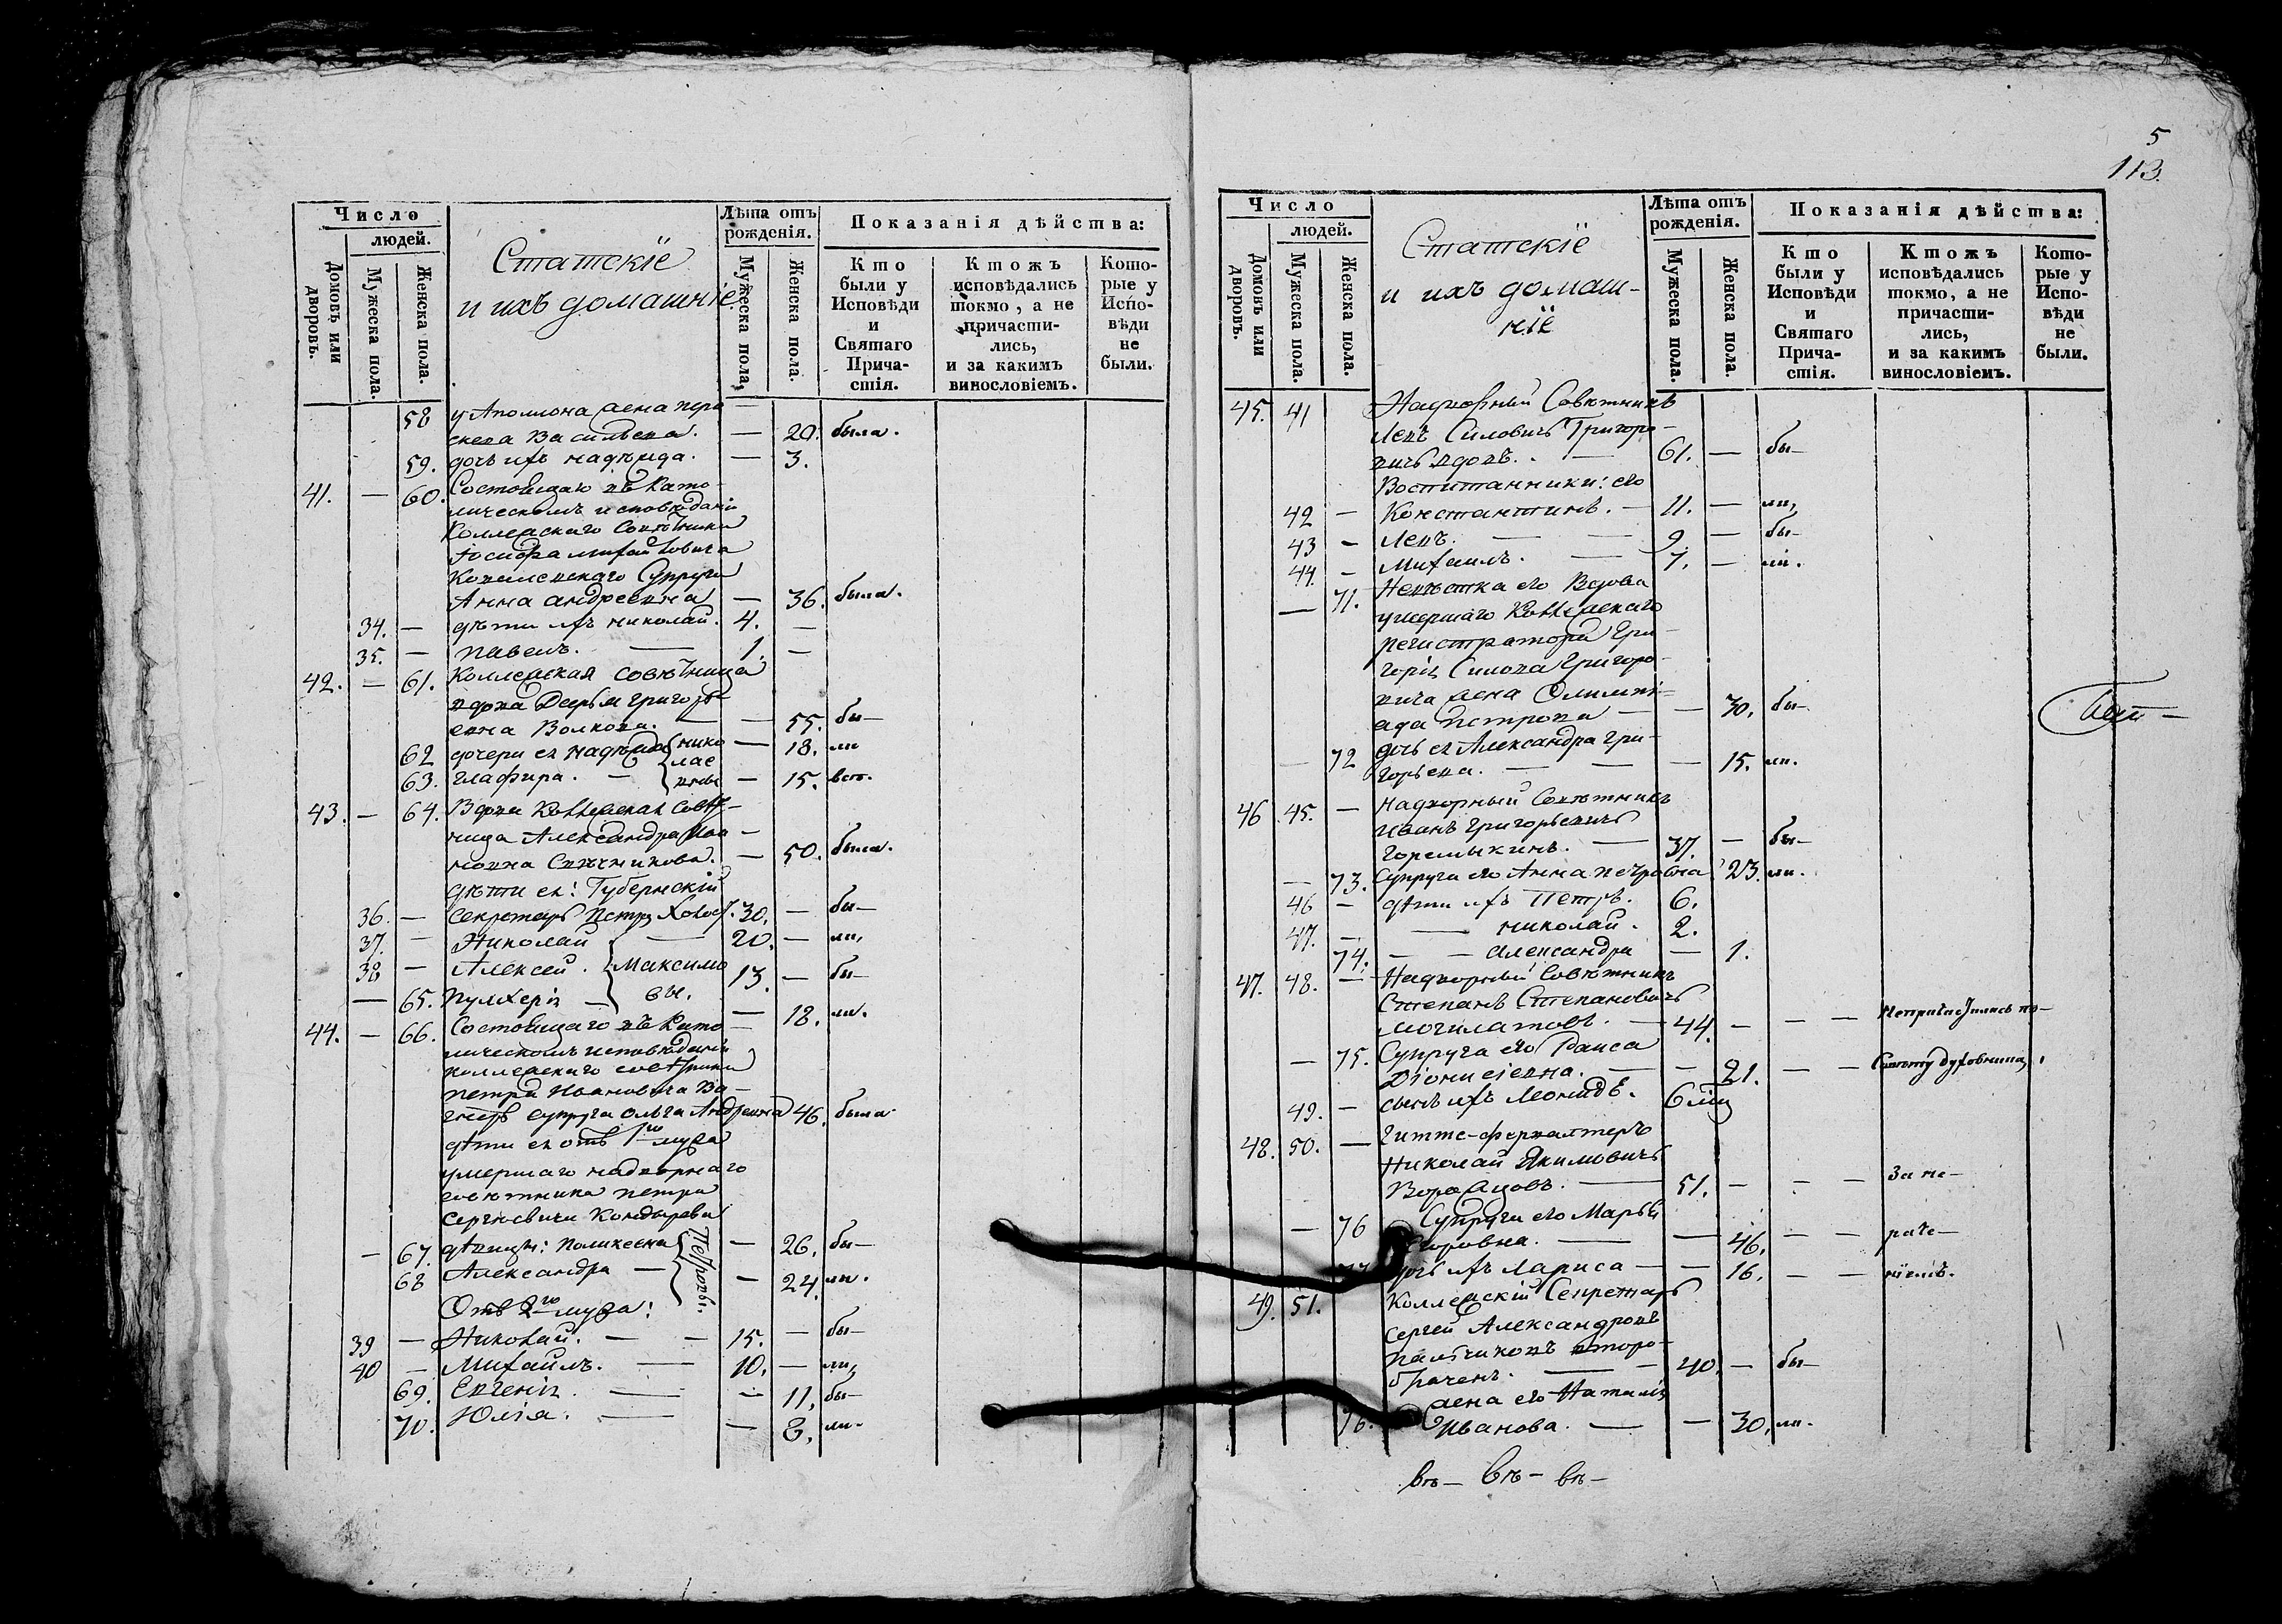 Число
людей.
Домовъ или дворовъ.
Мужеска пола.
Женска пола.
Статскіе
и ихъ домашніе
Лѣта отъ
рожденія.
Мужеска пола.
Женска пола.
Показанія дѣйства:
Кто
были у
Исповѣди
и
Святаго
Прича-
стія.
Ктожъ
исповѣдались
токмо, а не
причасти-
лись,
и за какимъ
винословіемъ.
Кото-
рые у
Испо-
вѣди
не
были.
58 у Аполлона жена пера
скева Васильева. — 29. была.
59. дочь ихъ надежда. — 3.
41. — 60. Состоящаго въ Като-
лическомъ исповѣданіи
Коллежскаго Совѣтника
Іосифа михайловича
Супруга
Анна андреевна — 36. была.
34. — дѣти ихъ николай. 4. —
35. — павелъ. — 1. —
42. — 61. Коллежская совѣтница
вдова Дарья григорь
евна Волкова. — — 55. бы—
62 дочери ея надежда нико — 18. ли
лае
63. глафира. — вны — 15. всѣ.
43. — 64. Вдова Коллежская Совѣт—
ница Александра Ива—
новна Свѣчникова. — 50. была.
дѣти ея: Губернскій
36. — секретарь Петръ холос. 30. — бы—
37. — Николай — 20. — ли,
38 — Алексей. Максимо 13. — бы—
— 65. Пулхерія — вы. — 18. ли.
44. — 66. Состоящаго въ Като—
лическомъ исповѣданіи
коллежскаго совѣтника
петра Ивановича Ва—
гнеръ супруга Ольга Андреевна 46. была
дѣти ея отъ 1го мужа
умершаго надворнаго
совѣтника петра
сергѣевича Кондырева
— 67. дѣвицы: Поликсена — 26, бы—
68 Александра — Петровы. — 24. ли.
Отъ 2го мужа:
39 — Николай. — — 15. — бы—
40 — Михайлъ. — 10. — ли,
69. Евгенія. — — 11, бы—
70. Юлія. — — 8, ли.
5
113.
Число
людей.
Домовъ или дворовъ.
Мужеска пола.
Женска пола.
Статскіе
и ихъ домаш-
ніе
Лѣта отъ
рожденія.
Мужеска пола.
Женска пола.
Показанія дѣйства:
Кто
были у
Исповѣди
и
Святаго
Прича-
стія.
Ктожъ
исповѣдались
токмо, а не
причасти-
лись,
и за какимъ
винословіемъ.
Кото-
рые у
Испо-
вѣди
не
были.
45. 41 Надворный Совѣтникъ
Левъ Силовичъ Григоро—
вичъ вдовъ. — 61. — бы—
Воспитанники: его
42 — Константинъ. — 11. — ли,
43 — Левъ. — — 9 — бы—
44. — Михаилъ. — 7. — ли.
— 71. Невѣстка его Вдова
умершаго Коллежскаго
регистратора Гри—
горія Силова Григоро—
вича жена Олимпі—
ада Петрова — — 30, бы—
— 72 дочь ея Александра Гри—
горьева. — — — 15. ли.
46 45. — надворный Совѣтникъ
Иванъ григорьевичъ
Горемыкинъ. — 37. — бы—
— 73. Супруга его Анна петровна 23. ли.
46 — дѣти ихъ Петръ. 6.
47. — — николай. 2.
74. — — александра — 1.
47. 48. — Надворный Совѣтникъ
Степанъ Степановичъ
— 44. — — — Непричастились по—
— 75. Супруга его Раиса
Діонисіевна. — — 21. — — Совѣту духовника,
49. — сынъ ихъ Леонидъ. 6 мц
48. 50. — Гитте-фервалтеръ
Николай Якимовичъ
— 51. — — — За не—
— 76 Супруга его Марья
Егоровна. — — 46. — — раче—
77 дочь ихъ Лариса — — 16. — — ніемъ.
49. 51. Коллежскій Секретарь
Сергей Александровъ
Пальчиковъ второ—
браченъ. — — 40. — бы—
76. жена его Наталія
Иванова. — — 30, ли.
въ— въ— въ—